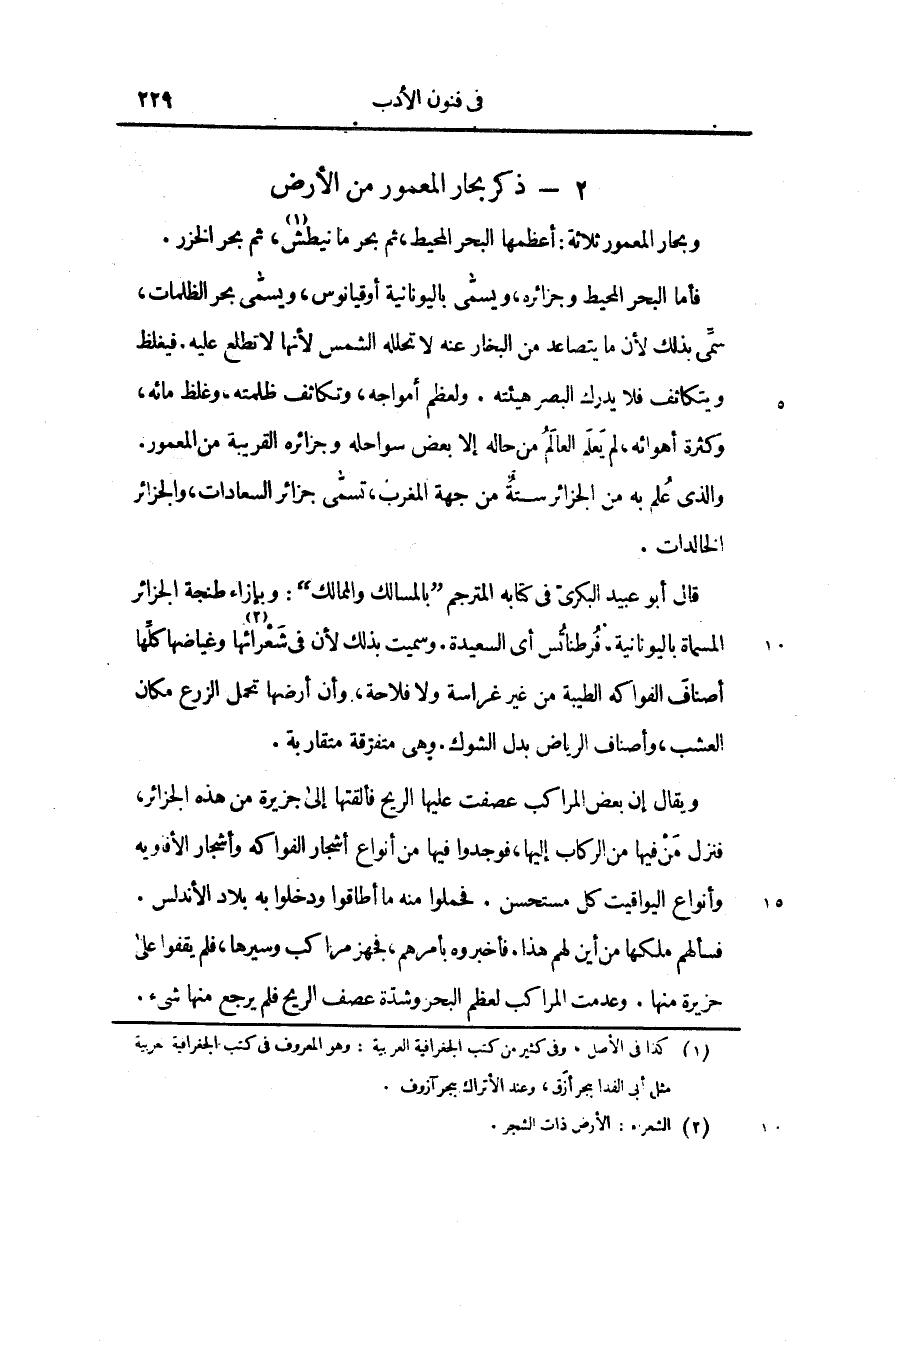 فى فنون الأدب ٢٢٩
٢ — ذكر بحار المعمور من الأرض
وبحار المعمور ثلاثة: أعظمها البحر المحيط، ثم بحر مانيطش(١)، ثم بحر الخزر.
فأما البحر المحيط وجزائره، ويسمَّى باليونانية أوقيانوس، ويسمَّى بحر الظلمات،
سمِّى بذلك لأن ما يتصاعد من البخار عنه لا تحلله الشمس لأنها لا تطلع عليه. فيغلظ
ويتكاثف فلا يدرك البصر هيئته. ولعظم أمواجه، وتكاثف ظلمته، وغلظ مائه، ٥
وكثرة أهوائه، لم يَعلَم العالَمُ من حاله إلا بعض سواحله وجزائره القريبة من المعمور.
والذى عُلم به من الجزائر ستةٌ من جهة المغرب، تسمَّى جزائر السعادات، والجزائر
الخالدات.
قال أبو عبيد البكرىّ فى كتابه المترجم “بالمسالك والممالك”: وبإزاء طنجة الجزائر
المسماة باليونانية. فُرطناتُس أى السعيدة. وسميت بذلك لأن فى شَعْرائها(٢) وغياضها كلِّها ١٠
أصنافَ الفواكه الطيبة من غير غراسة ولا فلاحة، وأن أرضها تحمل الزرع مكان
العشب، وأصناف الرياض بدل الشوك. وهى متفرّقة متقاربة.
ويقال إن بعض المراكب عصفت عليها الريح فألقتها إلىٰ جزيرة من هذه الجزائر،
فنزل مَنْ فيها من الركاب إليها، فوجدوا فيها من أنواع أشجار الفواكه وأشجار الأفاويه
وأنواع اليواقيت كل مستحسن. فحملوا منه ما أطاقوا ودخلوا به بلاد الأندلس. ١٥
فسألهم ملكها من أين لهم هذا. فأخبروه بأمرهم، فجهز مراكب وسيرها، فلم يقفوا علىٰ
جزيرة منها. وعدمت المراكب لعظم البحر وشدّة عصف الريح فلم يرجع منها شىء.
(١) كذا فى الأصل. وفى كثير من كتب الجغرافية العربية: وهو المعروف فى كتب الجغرافية عربية
مثل أبى الفدا ببحر أزَق، وعند الأتراك ببحر آزوف.
(٢) الشعراء: الأرض ذات الشجر. ١٠